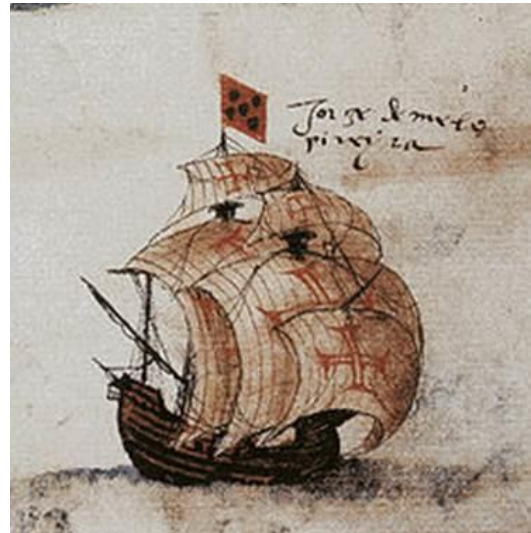 Jorge de mello
pireyra